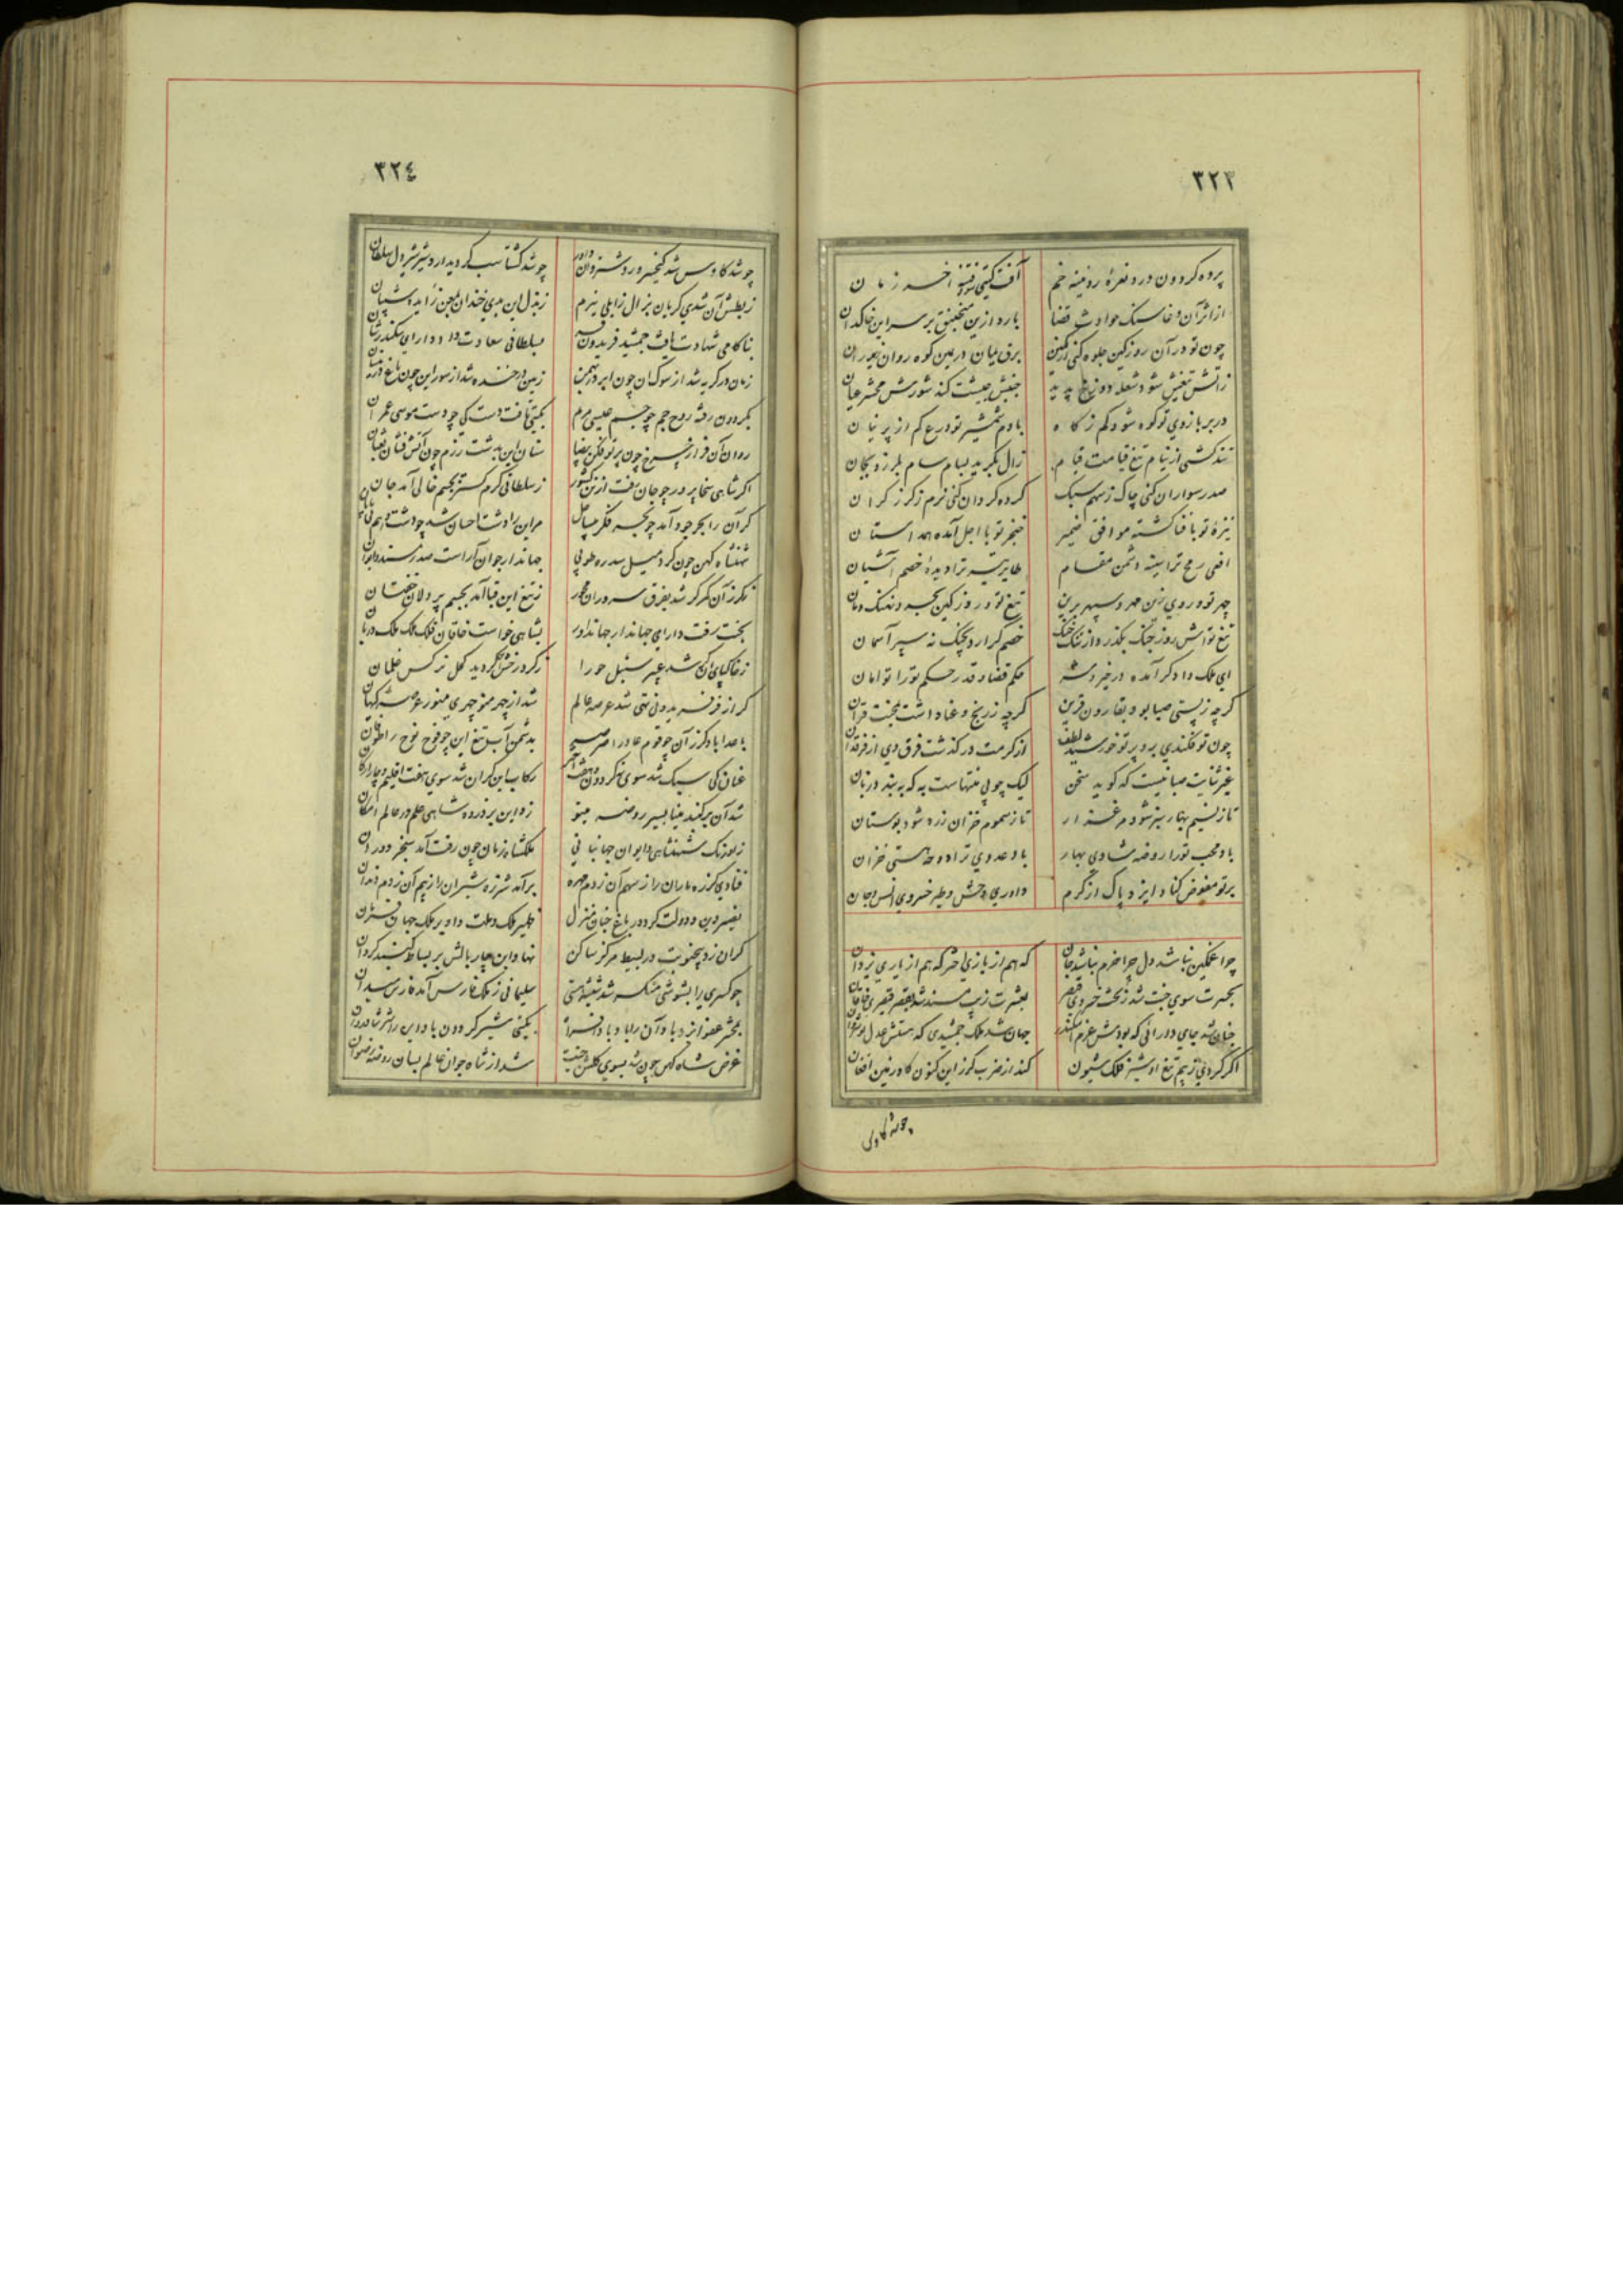 ٣٢٣
پرده گردون درد نعرهٔ رویینه خم
آفت گیتی شود فتنه آخر زمان
از اثر آن و غا سنگ حوادث قضا
بارد ازین منجنیق بر سر این خاکدان
چون تو در آن روز کین جلوه کنی
برق یمان در یمین کوه روان زیر ران
زآتش تیغش شود شعله دوزخ پدید
جنبش جیشت کند شورش محشر عیان
در بر بازوی تو کوه شود کم ز کاه
با دم شمشیر تو درع کم از پرنیان
تند کشی از نیام تیغ قیامت قیام
زال بگرید بسام سام بلرزد بجان
صدر سواران کنی چاک ز سهم سبک
گرده گردان کنی نرم ز گرز گران
نیزهٔ تو با فنا گشته موافق ضمیر
خنجر تو با اجل آمده همداستان
افعی رمح ترا سینه دشمن مقام
طایر تیر ترا دیدهٔ خصم آشیان
چهر تو در روی زین مهر و سپهر برین
تیغ تو در روز کین بحر و نهنگ دمان
تیغ تواش روز جنگ بگذرد از تنگ
خصم گر آرد بچنگ نه سپر آسمان
ای ملک دادگر آمده در خیر و شر
حکم قضا و قدر حکم تو را توامان
گرچه ز پستی صبا بود بقارون قرین
گرچه ز رنج و عنا داشت بمحنت قران
چون تو فکندی برو پرتو خورشید لطف
از کرمت در گذشت فرق وی از فرقدان
غیر ثنایت صبا نیست که گوید سخن
لیک چو بی منتهاست به که ببندد زبان
تا ز نسیم بهار سبز شود مرغزار
تا ز سموم خزان زرد شود بوستان
باد محب تو را روضه شادی بهار
باد عدوی ترا دوحه هستی خزان
بر تو مفوض کناد ایزد پاک از کرم
داوری وحش و طیر خسروی انس و جان
چرا غمگین نباشد دل چرا خرم نباشد جان
که هم از بازی اختر که هم از یاری یزدان
بحسرت سوی جنت شد ز تخت خسروی قیصر
بعشرت زیب مسند شد بقصر قیصری خاقان
جنان شد جای دارائی که بودش عزم اسکندر
جهان شد ملک جمشیدی که هستش عدل نوشروان
اگر گردی ز بیم تیغ او شیر فلک شیون
کند از ضرب گرز این کنون گاو زمین افغان
چو شد کاوس
٣٢٤
چو شد کاوس شد کیخسرو و
چو شد گشتاسب گردید اردشیر شیردل سلطان
ز بطش آن شدی گریان بزال زابلی نیرم
ز بذل این بدی خندان
بناکامی شهادت یافت جمشید فریدون فر
بسلطانی سعادت داد دارای سکندر شان
زمان در گریه شد از سوک آن چون ابر در بهمن
زمین در خنده شد از سور این چون باغ در نیسان
بگردون رفت روح جم چو جسم عیسی مریم
بگیتی یافت دست کی چو دست موسی عمران
روان آن فراز چرخ چون پرتو فکن بیضا
سنان این بدشت رزم چون آتش فشان ثعبان
اگر شاهی سخا پرور چو جان رفت از تن کشور
ز سلطانی کرم گستر بجسم خالی آمد جان
گر آن را بحر جود آمد چو بحر
مر این را دشت احسان شد چو دشت
شهنشاه کهن چون کرد میل سدره طوبی
جهاندار جوان آراست صدر مسند و ایوان
نه گرز آن گرگر شد بفرق سروران
نه تیغ این قبا آمد بجسم پردلان خفتان
بجنت رفت دارای جهاندار جهانداور
بشاهی خواست خاقان فلک ملک ملک دربان
ز خاک پای آن شد عبیر سنبل حورا
ز گرد رخش این گردید کحل نرگس غلمان
گر از فر فریدونی تهی شد عرصه عالم
شد از چهر منوچهری منور عرصه گیهان
باعدا باد گرز آن چو قوم عاد را صرصر
بدشمن آب تیغ این چو فوج نوح را طوفان
عنان کی سبک شد سوی نه گردون و هشت
رکاب این گران شد سوی هفت اقلیم و چار ارکان
شد آن بر گنبد مینا بسیر روضه مینو
زد این بر ذروه شاهی علم در عالم امکان
ز اورنگ شهنشاهی و ایوان جهانبانی
ملکشاه زمان چون رفت آمد سنجر دوران
فتادی گرزه ماران را ز سهم آن ز دم مهره
بر آمد شرزه شیران را ز بیم این ز دم دندان
نصیر دین و دولت کرد در باغ جنان منزل
ظهیر ملک و ملت داور ملک جهان
گر آن زد پنج نوبت در بسیط مرکز ساکن
نهاد این چار بالش بر بساط گنبد گردان
چو کسری را بشوشی منکسر شد شیشه هستی
سلیمانی ز ملک فارس آمد فارس میدان
بحشر عفو ایزد باد آن را
بگیتی شیر گردون باد این را شیر شادروان
غرض شاه کهن چون شد بسوی گلشن جنت
شد از شاه جوان عالم بسان روضه رضوان